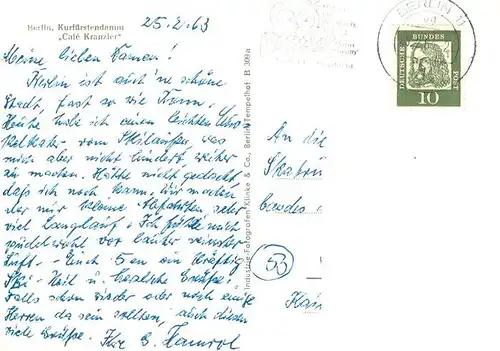 25.2.63
Berlin, Kurfürstendamm
„Café Kranzler"
Meine lieben Damen!
Berlin ist auch 'ne schöne
Stadt, fast so wie
Heute hab ich einen leichten Mus-
kelkater vom Skilaufen, was
mich aber nicht hindert, weiter
zu machen. Hätte nicht gedacht,
daß ich noch kann. Wir machen
aber nur kleine Abfahrten, sehr
viel Langlauf. Ich fühle mich
vor lauter reinster
Luft. - Euch ein kräftig
Ski-Heil u. herzliche Grüße!
Falls schon wieder oder noch einige
Herren da sein sollten, auch diesen
viele Grüße. Ihr G.
Industrie-Fotografen Klinke & Co., Berlin-Tempelhof B 309a
BERLIN 11
DEUTSCHE BUNDESPOST
10
An die
53